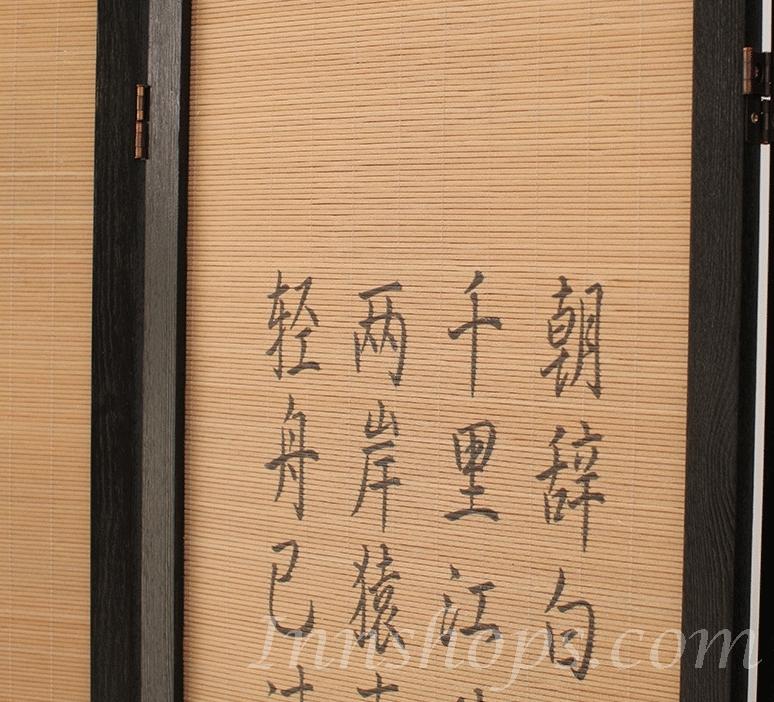 朝辞白
千里江
两岸猿
轻舟已
Innshops.com